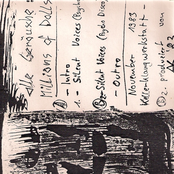 Alte Geräusche:
Millions of Dolls
A - Intro
1. - Silent Voices
B 2. - Silent Voices
- Outro
November 1983
Kellerklangwerkstatt
2: produziert von